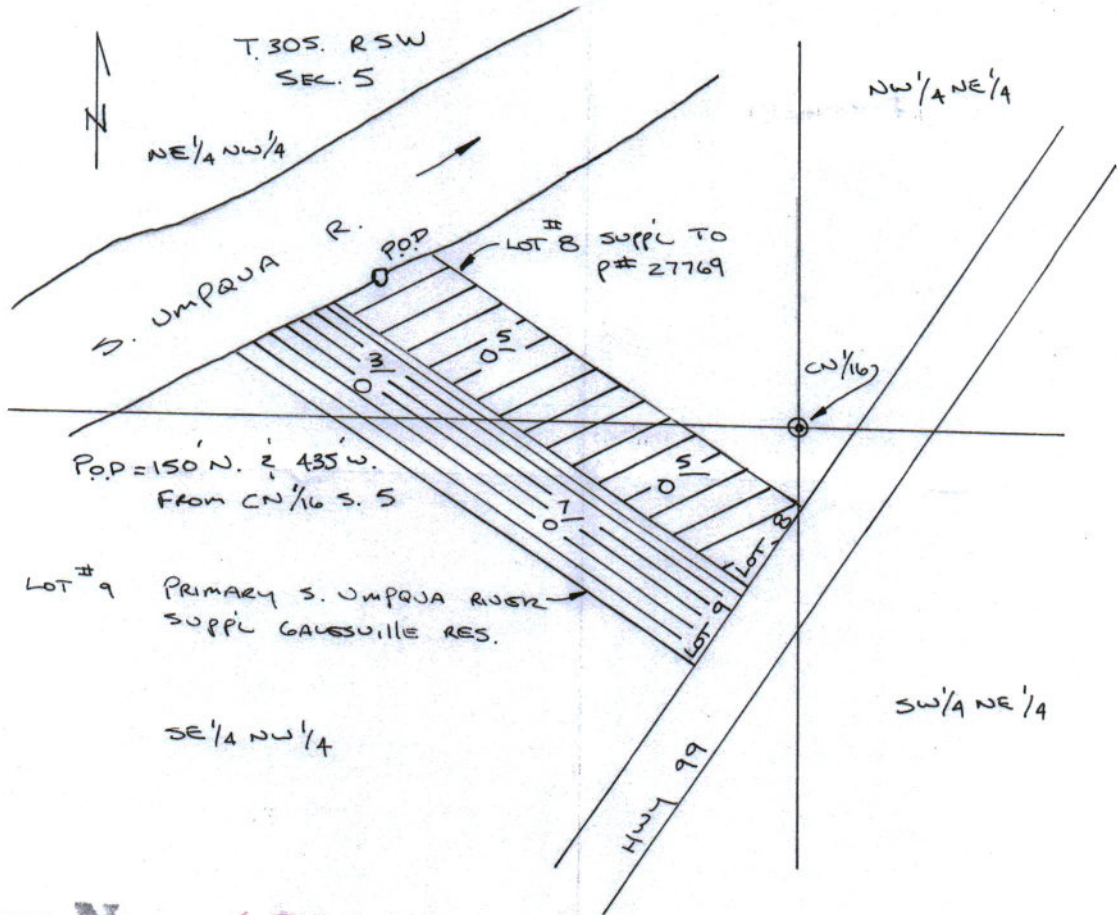 N
T.30S. R5W
SEC. 5
NW 1/4 NE 1/4
NE 1/4 NW 1/4
S. UMPQUA R.
P.O.D
LOT #8 SUPP'L TO
P# 27769
0.5/
0.3/
CN 1/16
P.O.D = 150' N. & 435' W.
FROM CN 1/16 S. 5
0.5/
LOT 8
LOT #9 PRIMARY S. UMPQUA RIVER
SUPP'L GALESVILLE RES.
LOT 9
SE 1/4 NW 1/4
SW 1/4 NE 1/4
HWY 99